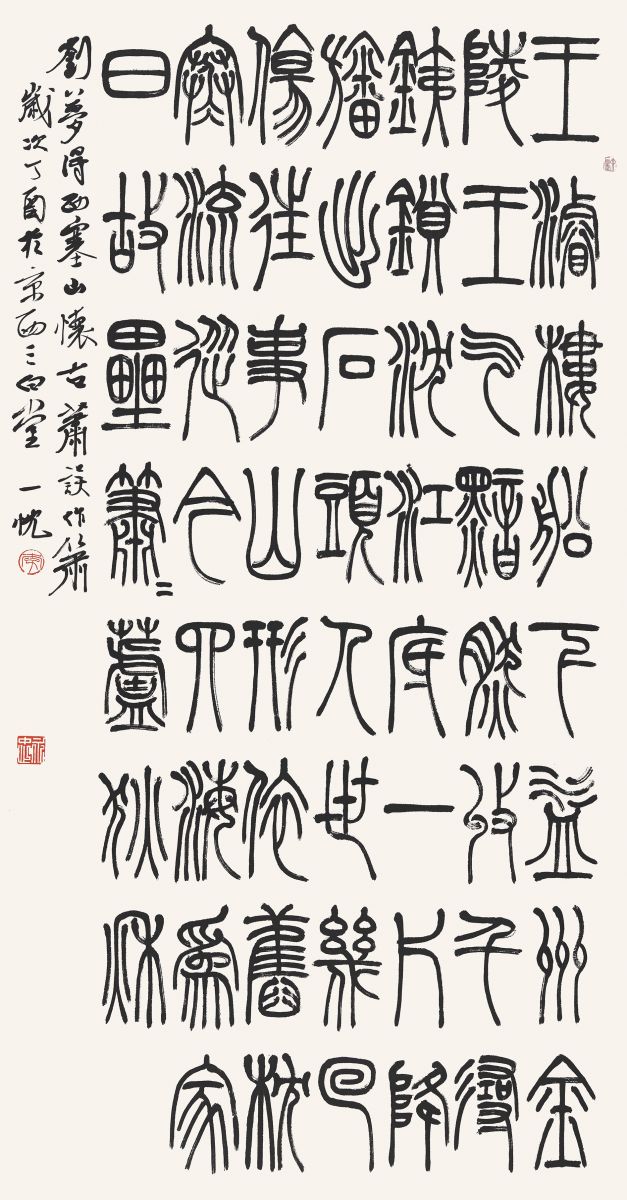 王濬樓船下益州金
陵王气黯然收千尋
銕鎖沈江底一片降
旛出石頭人世幾回
傷往事山形依舊枕
寒流從今四海為家
日故壘簫〻蘆荻秋
劉夢得西塞山懷古蕭误作簫
歲次丁酉於京西三堂一忱